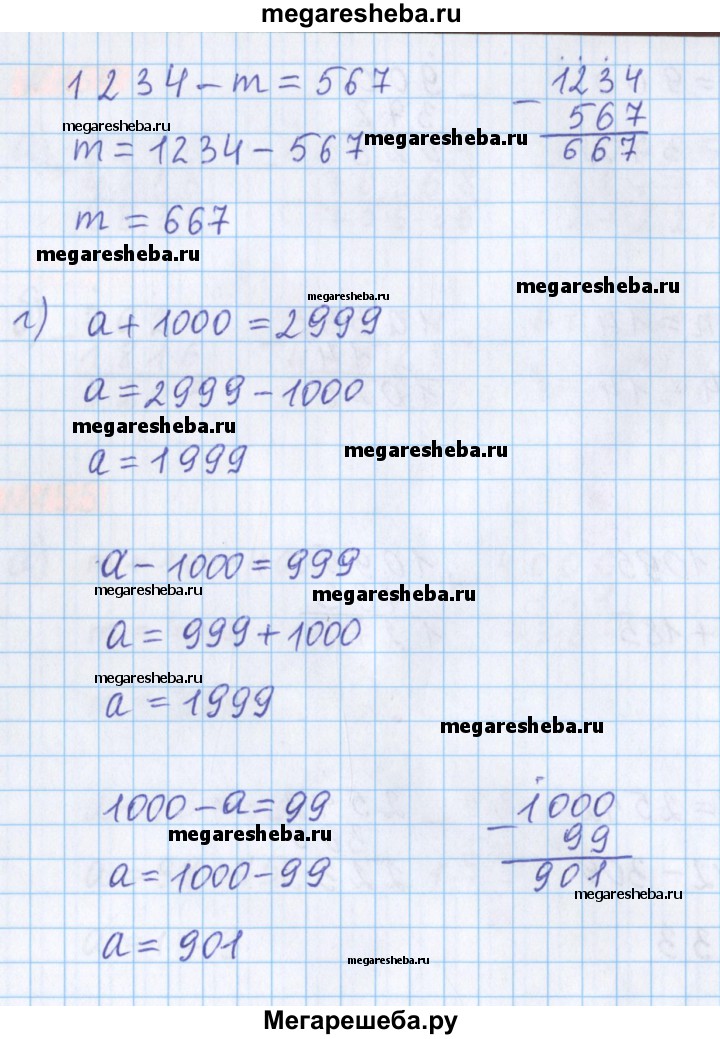 megaresheba.ru
1234 - m = 567
1234
- 567
667
megaresheba.ru
megaresheba.ru
m = 1234 - 567
m = 667
megaresheba.ru
megaresheba.ru
megaresheba.ru
г) a + 1000 = 2999
a = 2999 - 1000
megaresheba.ru
megaresheba.ru
a = 1999
a - 1000 = 999
megaresheba.ru
megaresheba.ru
a = 999 + 1000
megaresheba.ru
a = 1999
megaresheba.ru
1000 - a = 99
1000
- 99
901
megaresheba.ru
a = 1000 - 99
megaresheba.ru
a = 901
megaresheba.ru
Мегарешеба.ру